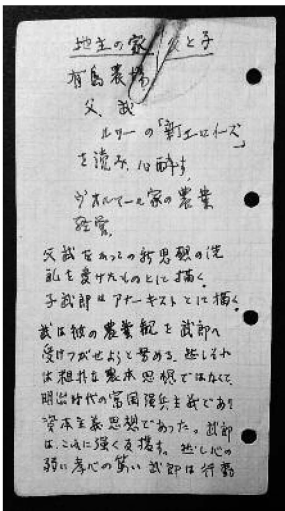 地主の家、父と子
有島農場
父、武
ルソーの「新エロイーズ」
を読み、心酔す。
ヴオルマール家の農業
経営。
父武をかつての新思想の洗
礼を受けたものとして描く。
子武郎はアナーキストとして描く。
武は彼の農業観を武郎へ
受けつがせようと努める。然しそれ
は粗朴な農本思想ではなくて、
明治時代の富国強兵主義であり
資本主義思想であった。武郎
は、これに強く反撥す。然し心の
弱い孝心の篤い武郎は行動